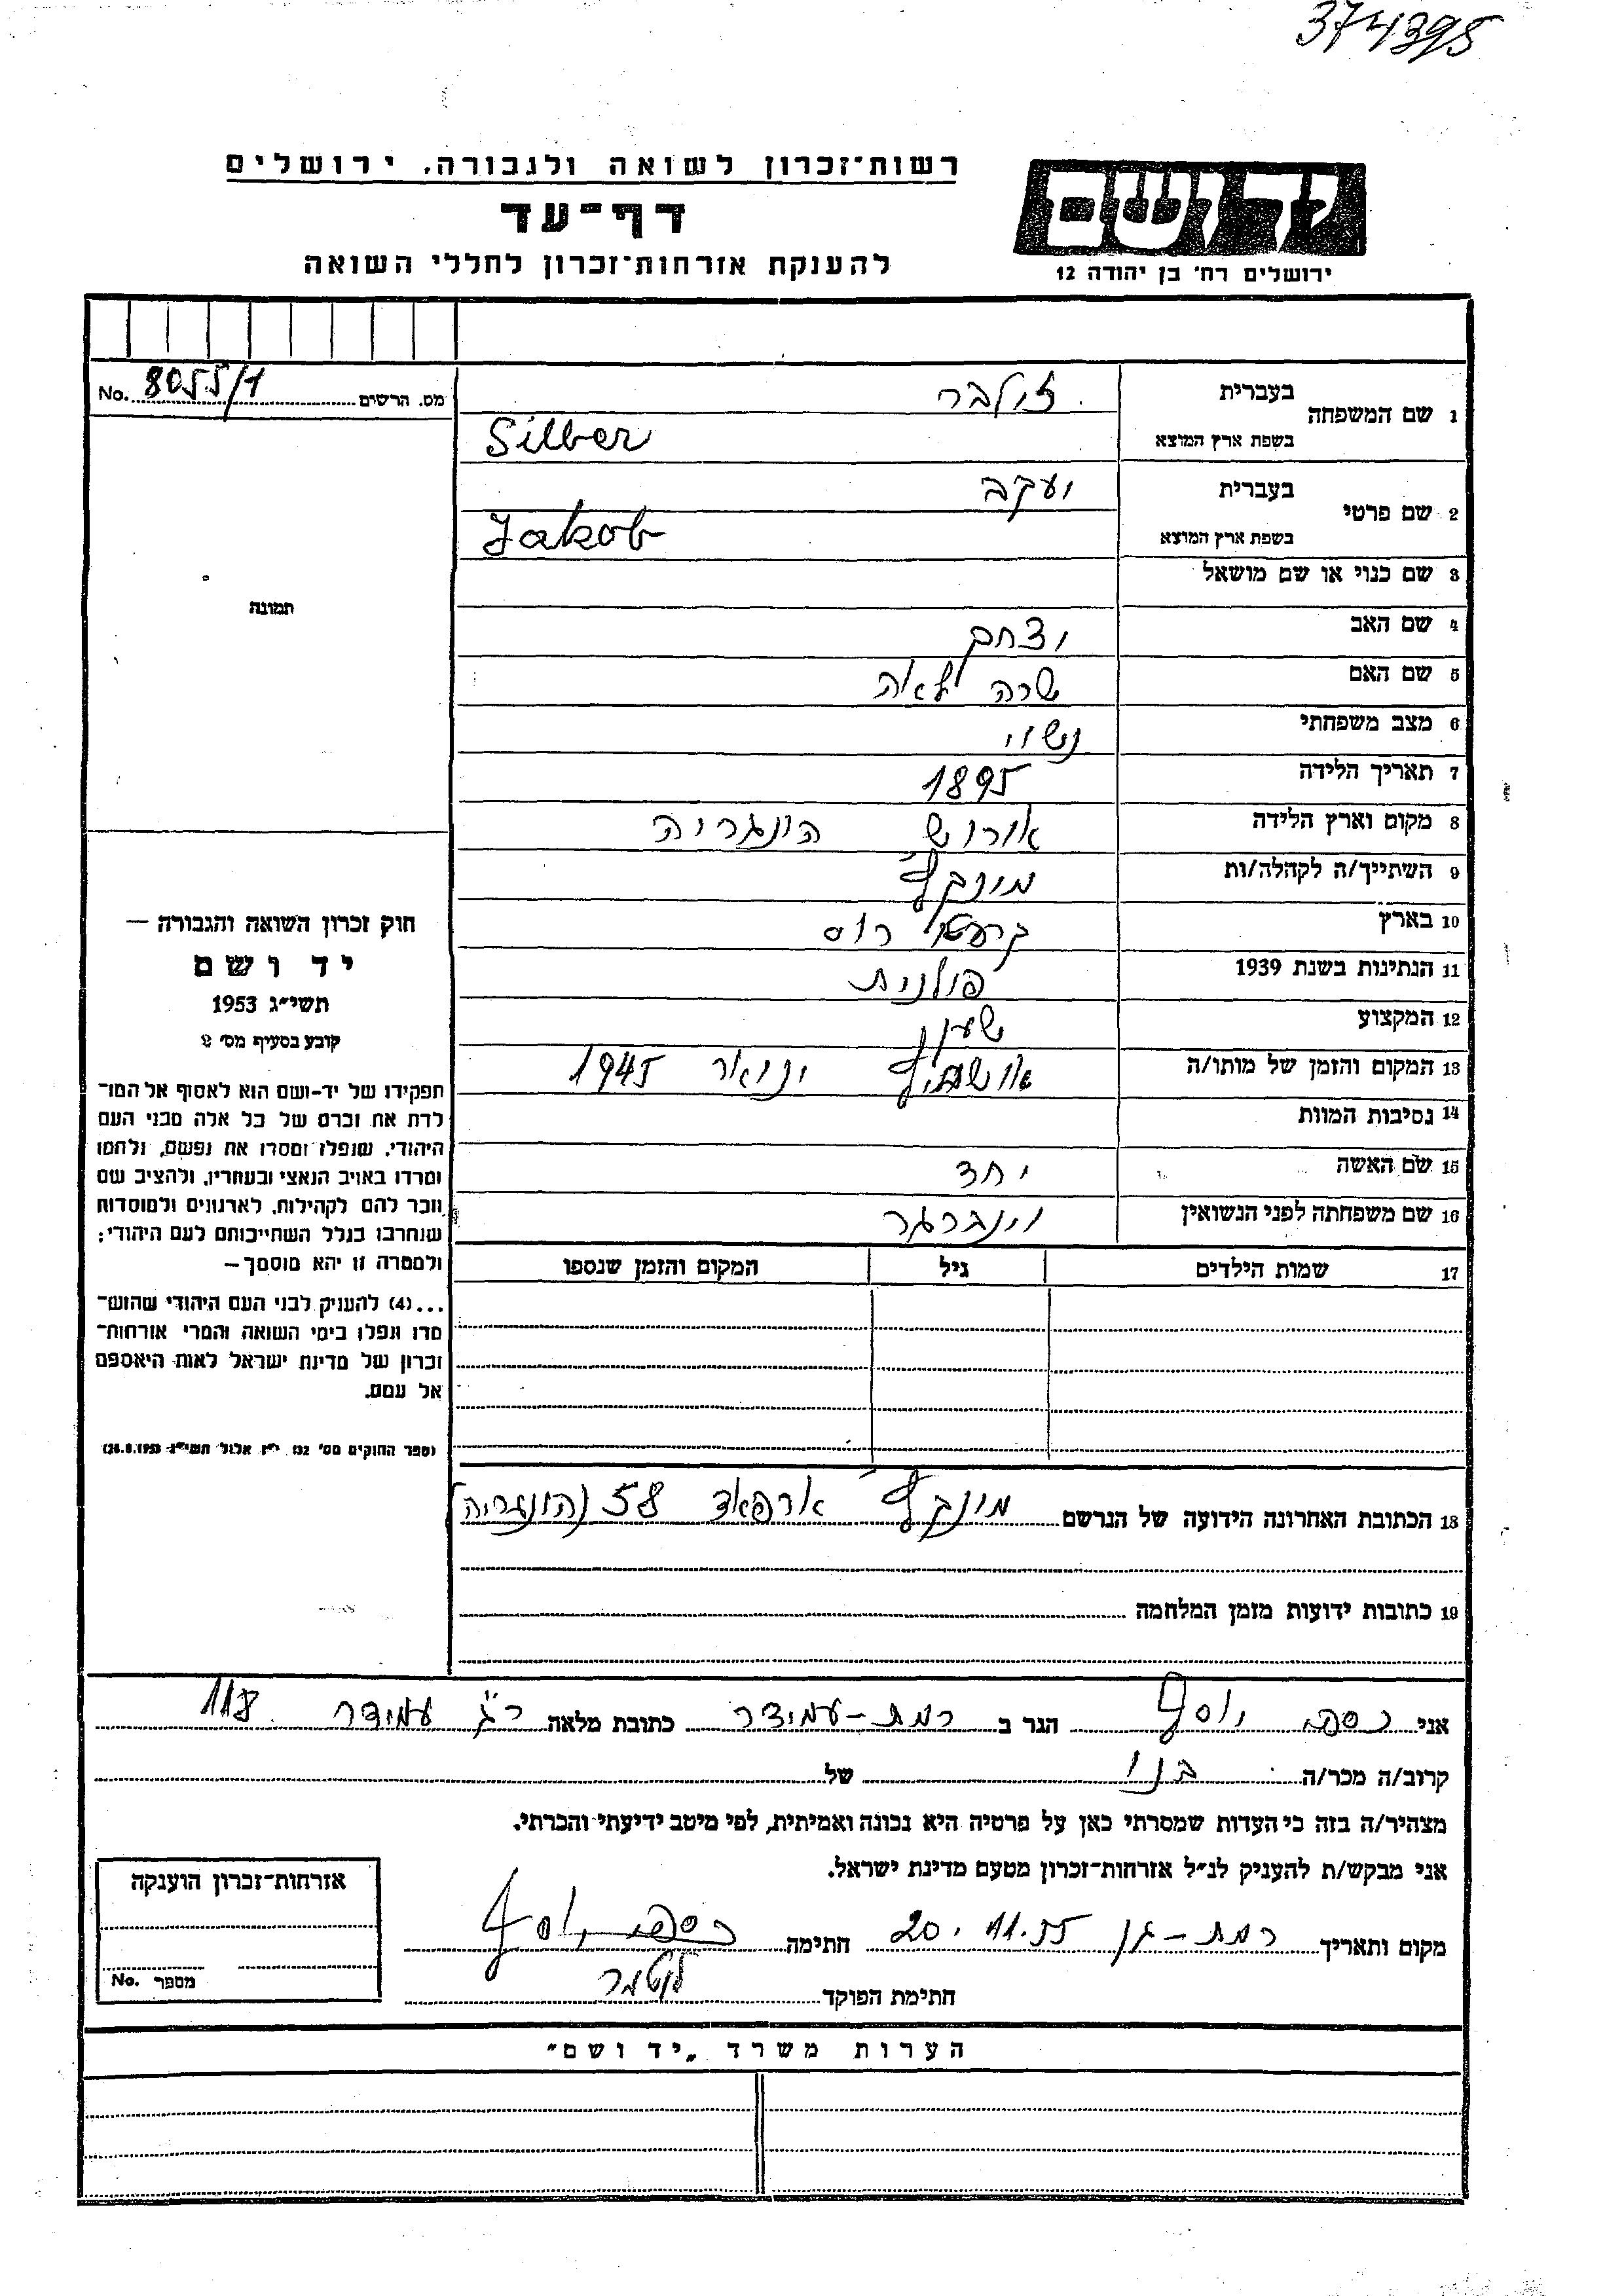 374395
רשות־זכרון לשואה ולגבורה, ירושלים
דף־עד
להענקת אזרחות־זכרון לחללי השואה
יד ושם
ירושלים רח' בן יהודה 12
מס. הרשים No. 8055/1
1 שם המשפחה בעברית זילבר
בשפת ארץ המוצא Silber
2 שם פרטי בעברית יעקב
בשפת ארץ המוצא Jakob
3 שם כנוי או שם מושאל
4 שם האב יצחק
5 שם האם שרה לאה
6 מצב משפחתי נשוי
7 תאריך הלידה 1895
8 מקום וארץ הלידה אורוש הונגריה
9 השתייך/ה לקהלה/ות מונקץ'
10 בארץ רוס
11 הנתינות בשנת 1939 פולנית
12 המקצוע שען
13 המקום והזמן של מותו/ה אושויץ ינואר 1945
14 נסיבות המוות
15 שם האשה
16 שם משפחתה לפני הנשואין וינברגר
17 שמות הילדים גיל המקום והזמן שנספו
תמונה
חוק זכרון השואה והגבורה —
יד ושם
תשי״ג 1953
קובע בסעיף מס' 2
תפקידו של יד-ושם הוא לאסוף אל המו־
לדת את זכרם של כל אלה מבני העם
היהודי, שנפלו ומסרו את נפשם, נלחמו
ומרדו באויב הנאצי ובעוזריו, ולהציב שם
וזכר להם לקהילות, לארגונים ולמוסדות
שנחרבו בגלל השתייכותם לעם היהודי;
ולמטרה זו יהא מוסמך—
...(4) להעניק לבני העם היהודי שהוש־
מדו ונפלו בימי השואה והמרי אזרחות־
זכרון של מדינת ישראל לאות היאספם
אל עמם.
(ספר החוקים מס' 132 י״ז אלול תשי״ג 28.8.1953)
18 הכתובת האחרונה הידועה של הנרשם מונקץ' ארפאד 58 (הונגריה)
19 כתובות ידועות מזמן המלחמה
אני כספי יוסף הגר ב רמת-עמידר כתובת מלאה ר״ג עמידר 118
קרוב/ה מכר/ה בנו של
מצהיר/ה בזה כי העדות שמסרתי כאן על פרטיה היא נכונה ואמיתית, לפי מיטב ידיעתי והכרתי.
אני מבקש/ת להעניק לנ״ל אזרחות־זכרון מטעם מדינת ישראל.
מקום ותאריך רמת-גן 20.11.55 חתימה כספי יוסף
חתימת הפוקד
אזרחות־זכרון הוענקה
מספר No.
הערות משרד „יד ושם״